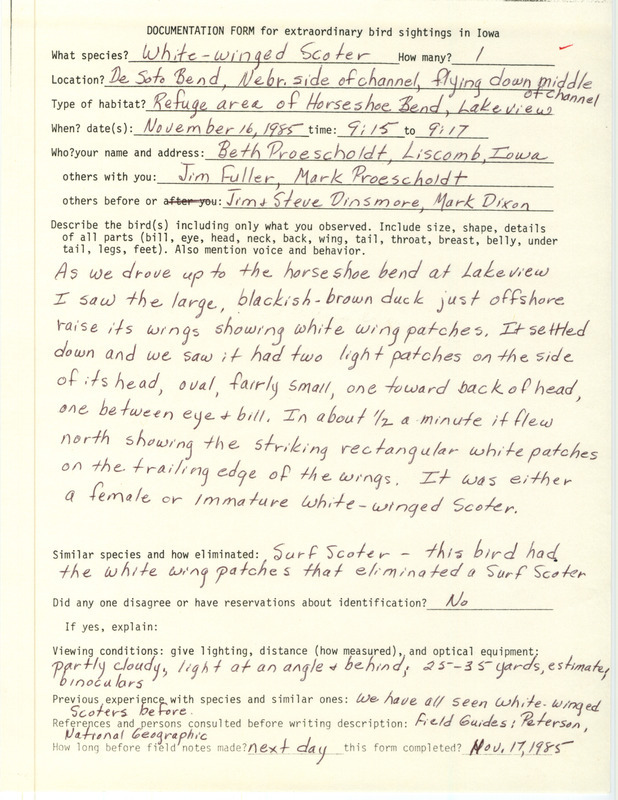 DOCUMENTATION FORM for extraordinary bird sightings in Iowa
What species? White-winged Scoter How many? 1
Location? De Soto Bend, Nebr. side of channel, flying down middle of channel
Type of habitat? Refuge area of Horseshoe Bend, Lakeview
When? date(s): November 16, 1985 time: 9:15 to 9:17
Who?your name and address: Beth Proescholdt, Liscomb, Iowa
others with you: Jim Fuller, Mark Proescholdt
others before or after you: Jim & Steve Dinsmore, Mark Dixon
Describe the bird(s) including only what you observed. Include size, shape, details
of all parts (bill, eye, head, neck, back, wing, tail, throat, breast, belly, under
tail, legs, feet). Also mention voice and behavior.
As we drove up to the horseshoe bend at Lakeview
I saw the large, blackish-brown duck just offshore
raise its wings showing white wing patches. It settled
down and we saw it had two light patches on the side
of its head, oval, fairly small, one toward back of head,
one between eye & bill. In about 1/2 a minute it flew
north showing the striking rectangular white patches
on the trailing edge of the wings. It was either
a female or immature White-winged Scoter.
Similar species and how eliminated: Surf Scoter - this bird had
the white wing patches that eliminated a Surf Scoter
Did any one disagree or have reservations about identification? No
If yes, explain:
Viewing conditions: give lighting, distance (how measured), and optical equipment:
partly cloudy, light at an angle & behind; 25-35 yards, estimate,
binoculars
Previous experience with species and similar ones: We have all seen White-winged
Scoters before.
References and persons consulted before writing description: Field Guides: Peterson,
National Geographic
How long before field notes made? next day this form completed? Nov. 17, 1985